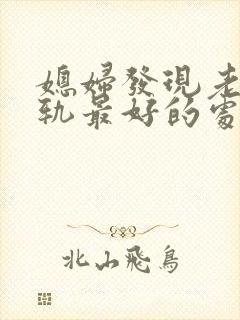 媳婦發現老
軌最好的處
北山飛鳥